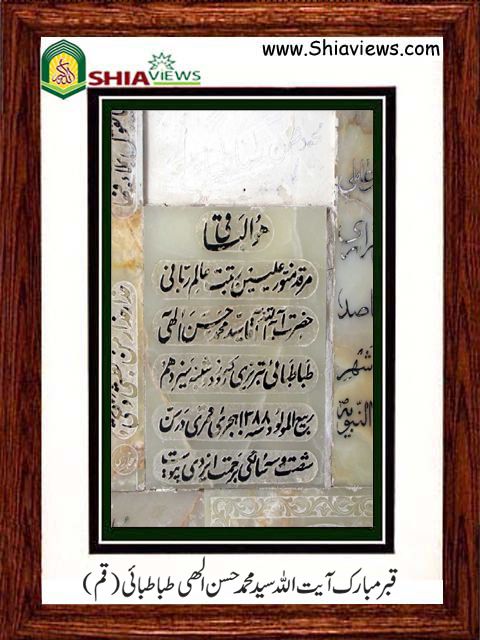 www.Shiaviews.com
SHIAVIEWS
هو الباقی
مرقد منور علیین رتبت عالم ربانی
حضرت آیة الله آقا سید محمد حسن الهی
طباطبائی تبریزی که روز دوشنبه سیزدهم
ربیع المولود سنه ۱۳۸۸ هجری قمری در سن
شصت و سه سالگی برحمت ایزدی پیوست
شهر
النبویه
قبر مبارک آیت اللہ سید محمد حسن الھی طباطبائی (قم)